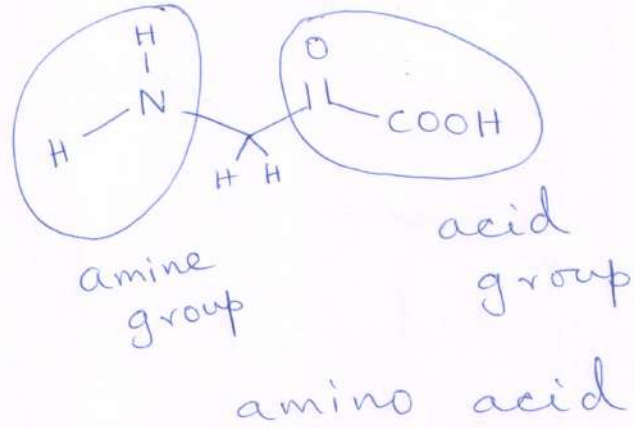 H
O
N
H
COOH
H H
amine
group
acid
group
amino acid